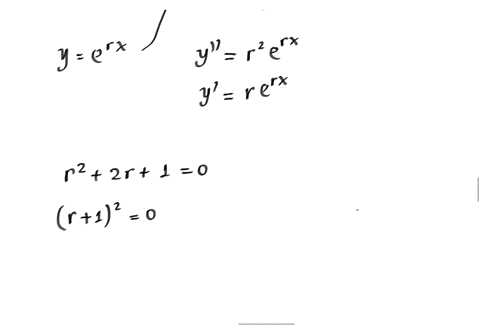 y = e^{rx}
y'' = r^2 e^{rx}
y' = r e^{rx}
r^2 + 2r + 1 = 0
(r+1)^2 = 0